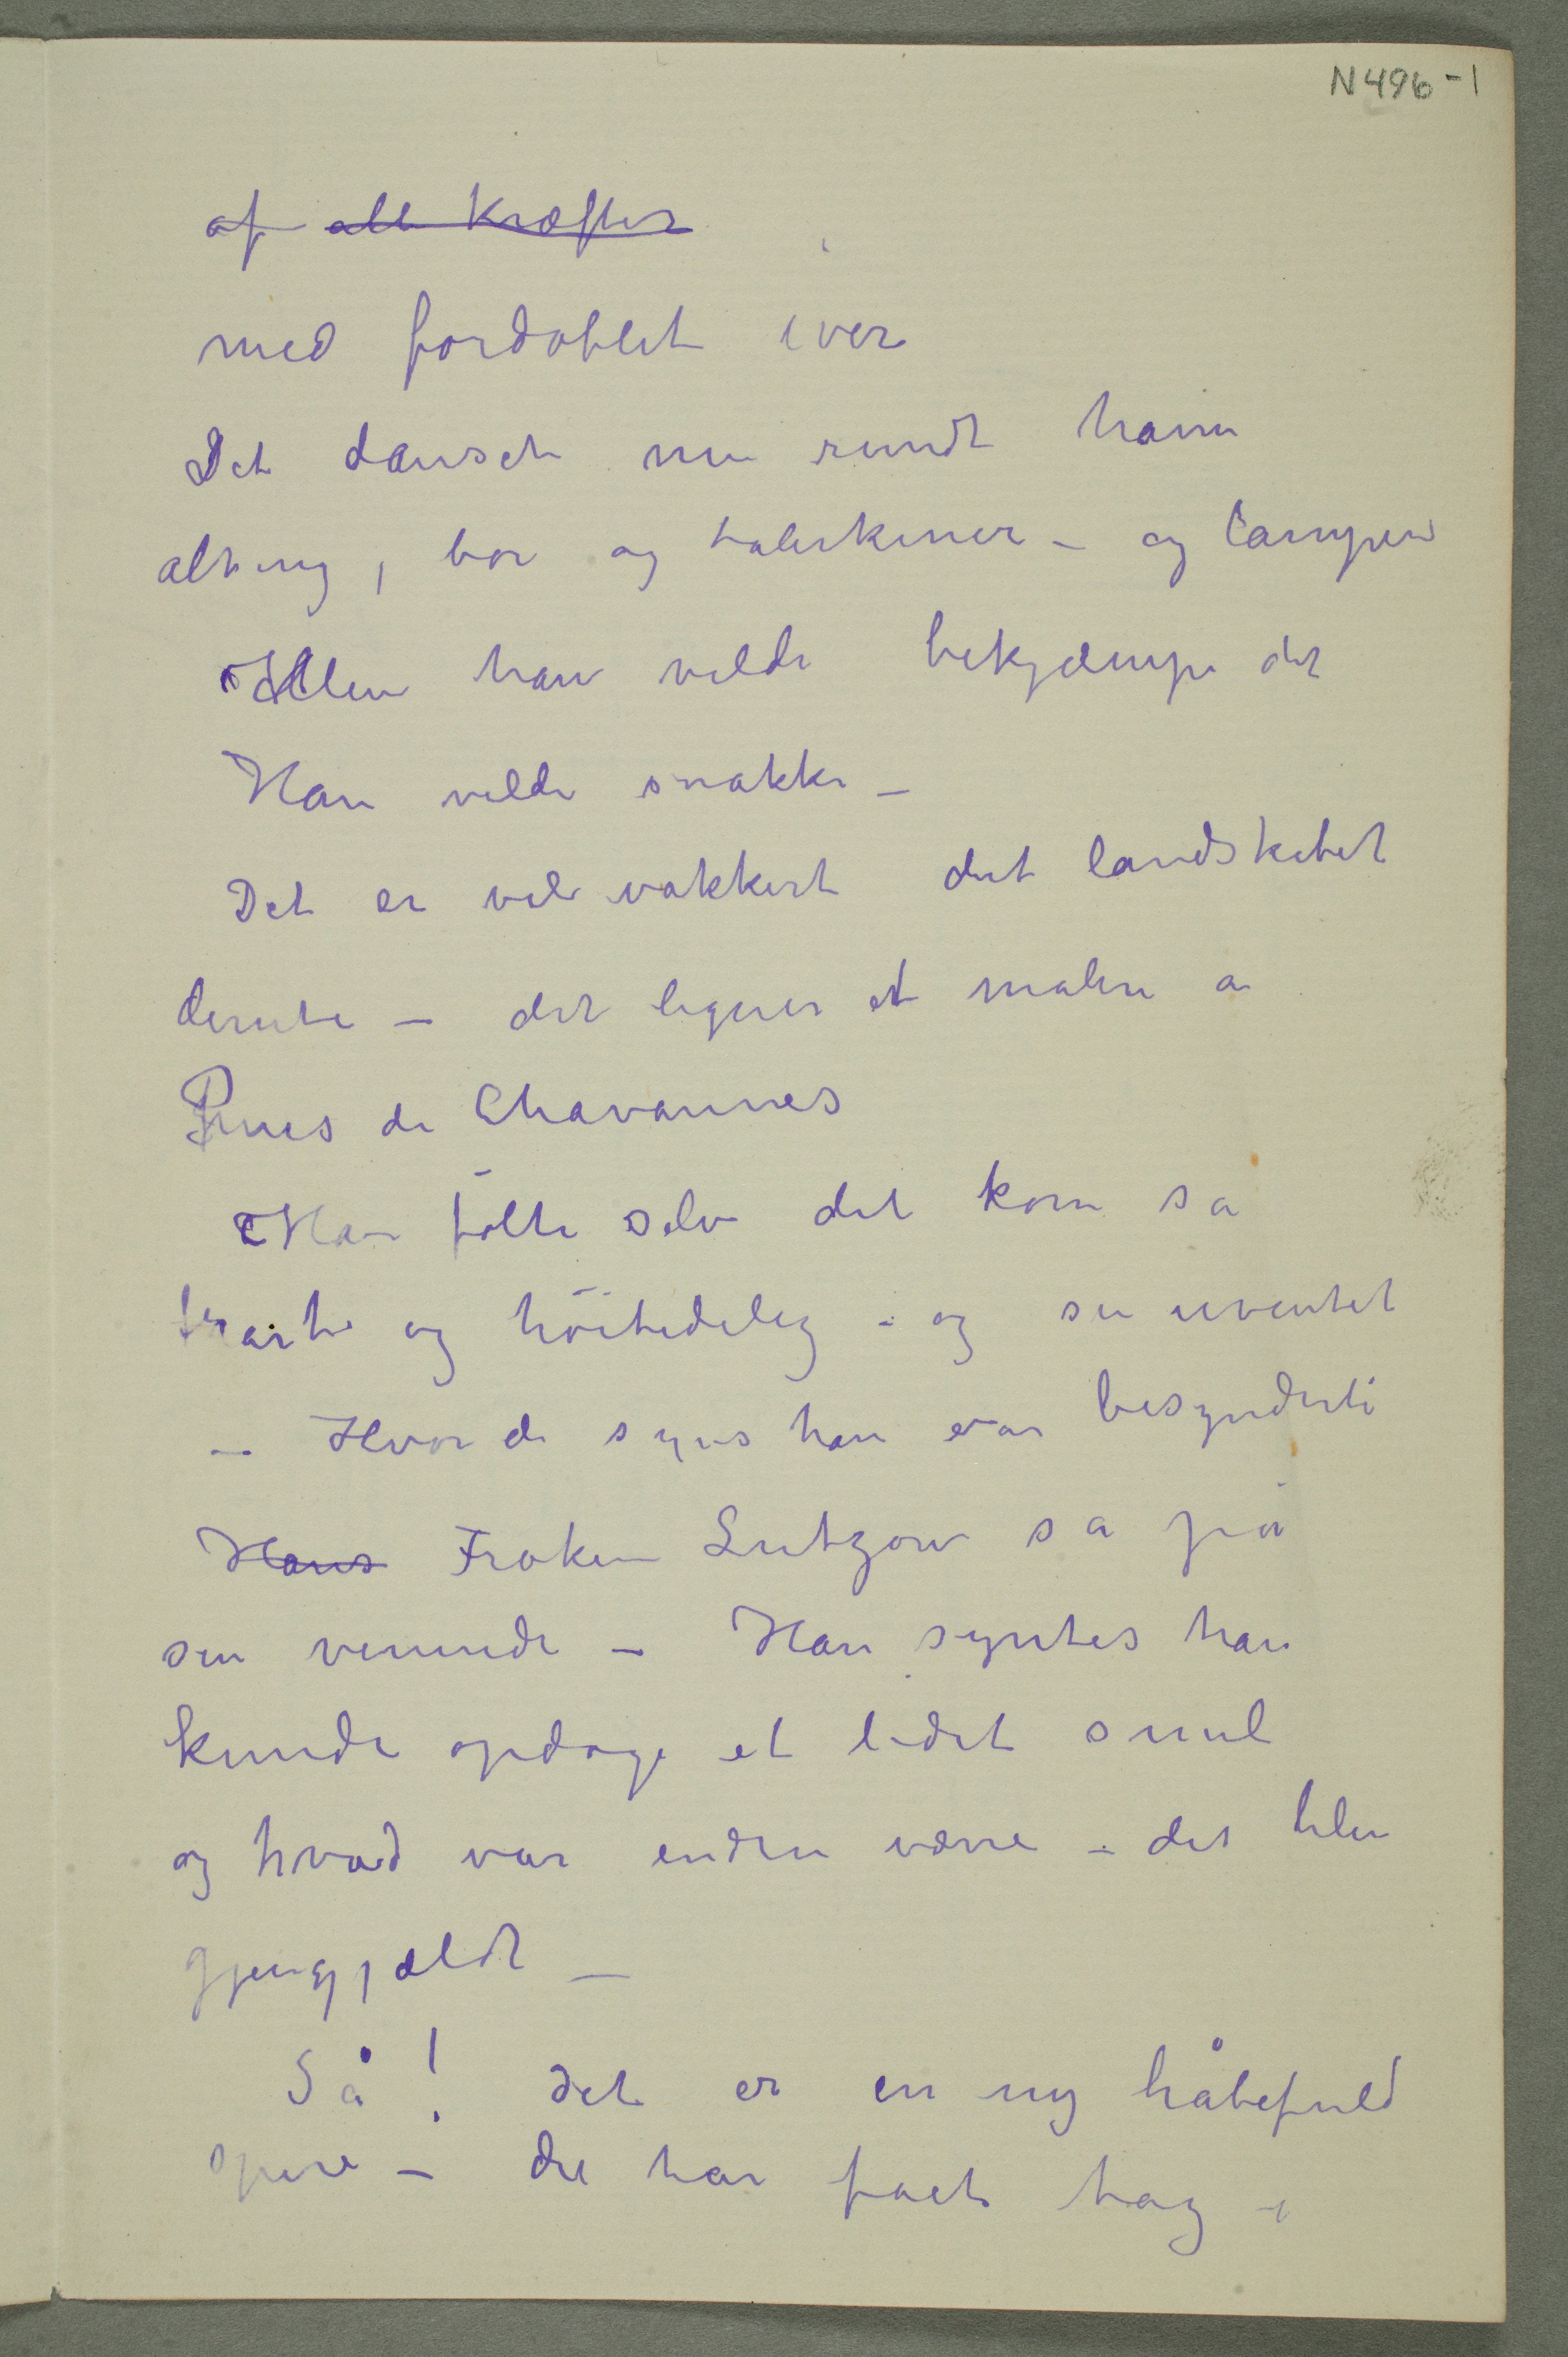 N496-1
af alle kræfter
med fordoblet iver
Det danset nu rundt ham
alting, bor og talerkener – og lampen
Men han vilde bekjæmpe det
Han vilde snakke –
Det er vel vakkert det landskabet
derute – det ligner et maleri a
Puvis de Chavannes
Han følte selv det kom så
tvært og høitidelig – og så uventet
– Hvor de synes han var besynderli
Hans Frøken Lutzow så på
sin veninde – Han syntes han
kunde opdage et lidet smil
og hvad var endnu værre – det blev
gjengjældt –
Så! det er en ny håbefuld
spire – du har fået tag i